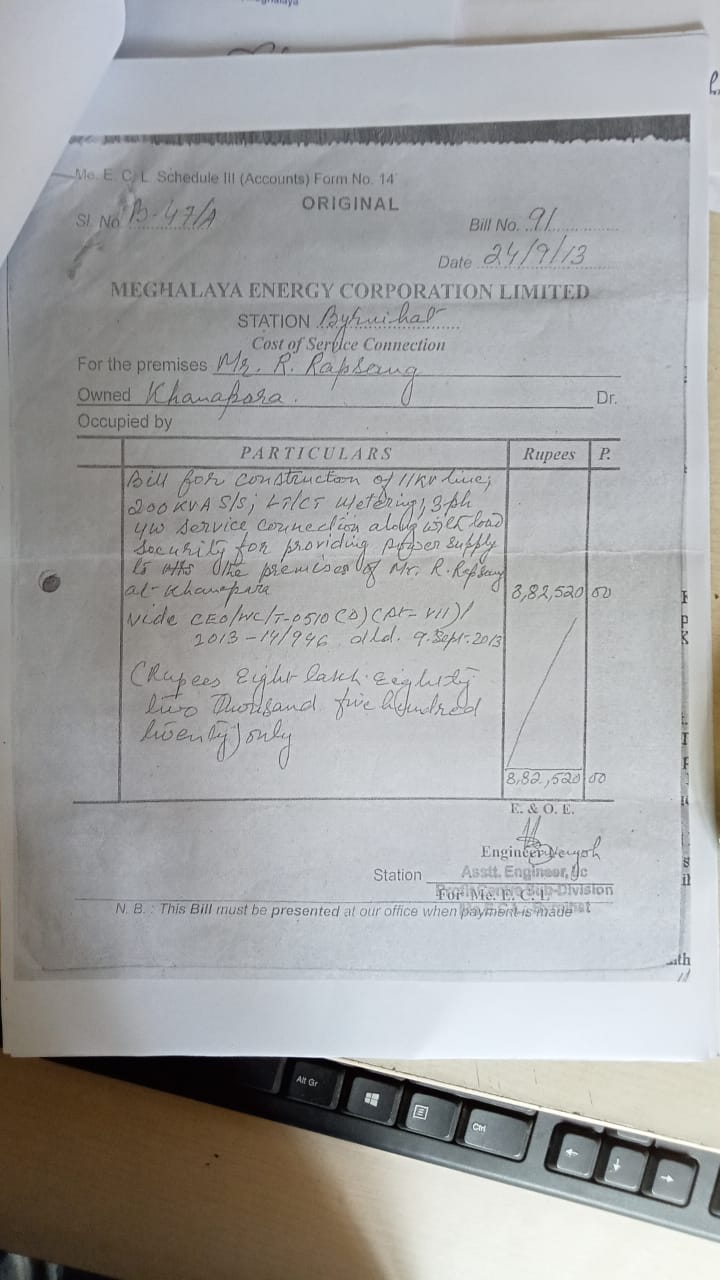 Me. E. C. L. Schedule III (Accounts) Form No. 14
ORIGINAL
Sl. No. B-47/A
Bill No. 91
Date 24/9/13
MEGHALAYA ENERGY CORPORATION LIMITED
STATION Byrnihat
Cost of Service Connection
For the premises Mr. R. Rapsang
Owned Khanapara.
Dr.
Occupied by
PARTICULARS Rupees P.
Bill for construction of 11KV line,
200 KVA S/S; LT/CT Metering, 3ph
4w service connection along with load
security for providing power supply
to the premises of Mr. R. Rapsang
at- Khanapara 8,82,520 00
vide CEO/WC/T-0510 (D) (Pt- VII)/
2013-14/946 dtd. 9.Sept.2013
(Rupees Eight lakh Eighty
two Thousand five hundred
twenty) only
8,82,520 00
E. & O. E.
Engineer
Asstt. Engineer, I/c
Station
Sub-Division
For Me. E. C. L.
N. B. : This Bill must be presented at our office when payment is made
Alt Gr
Ctrl